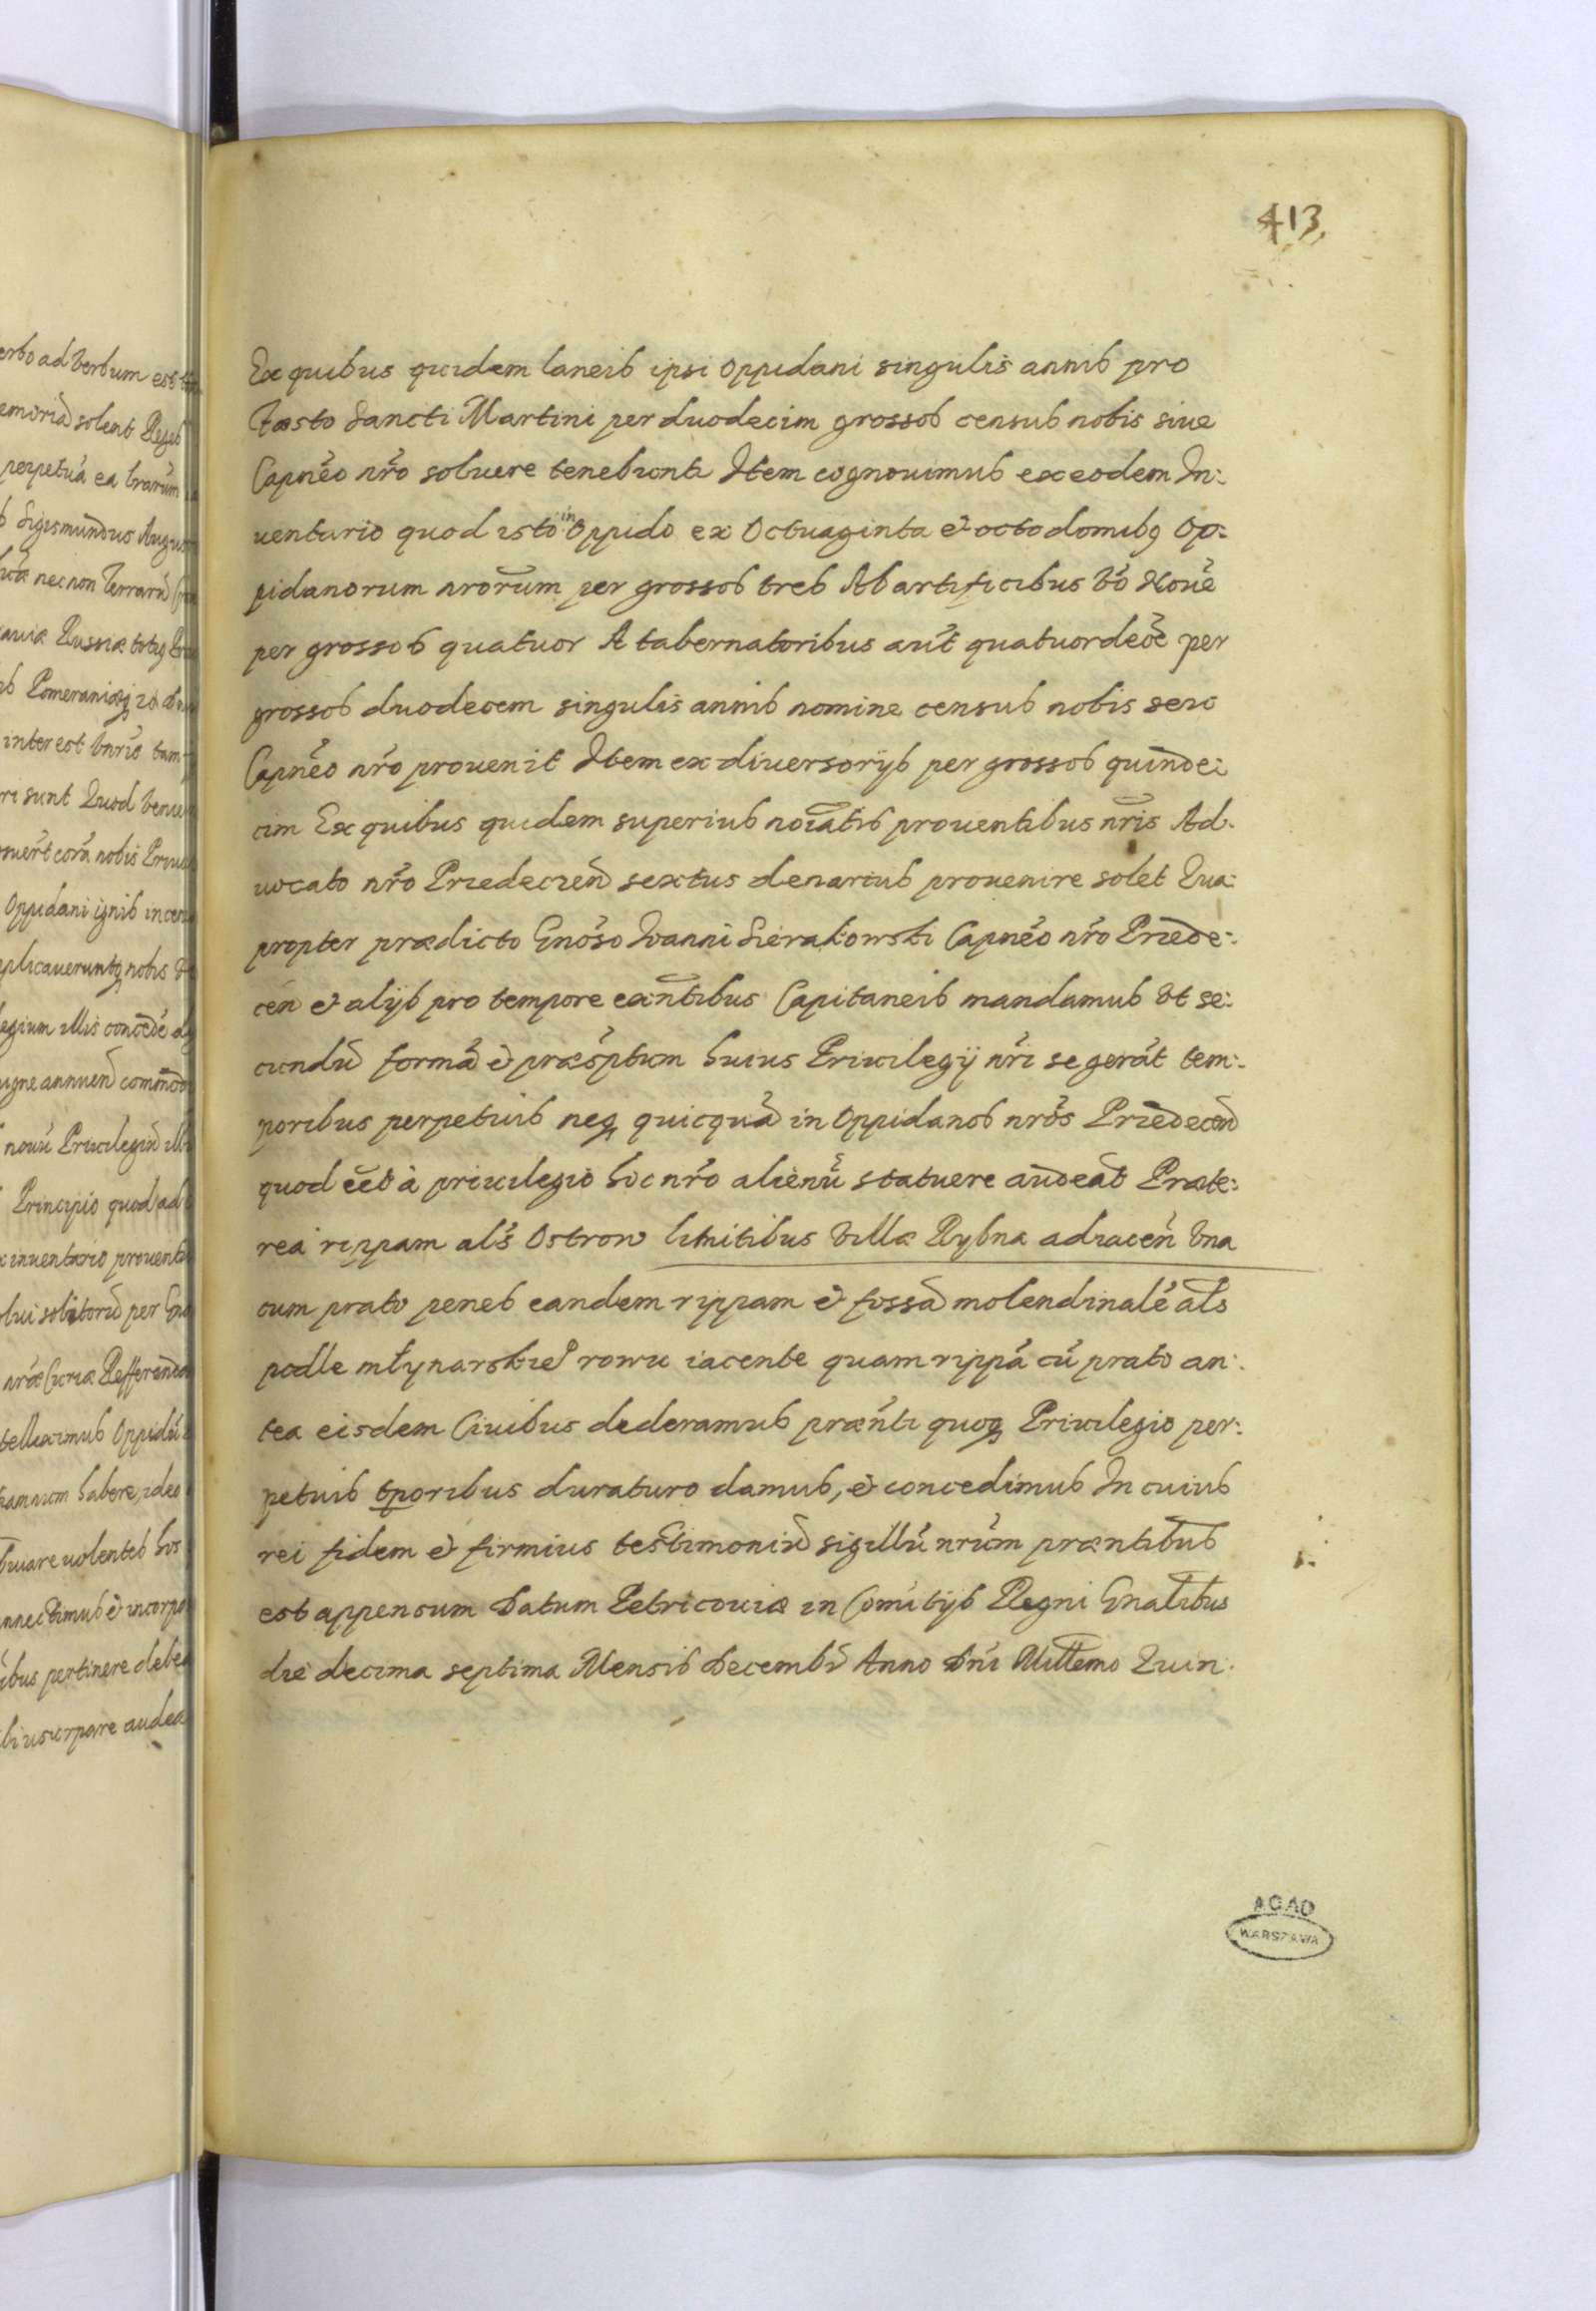 413
Ex quibus quidem laneis ipsi oppidani singulis annis pro
Fæsto Sancti Martini per duodecim grossos census nobis siue
Capnéo nr̃o soluere tenebunt Item cognouimus ex eodem In:
uentario quod isto in oppido ex Octuaginta et octo domibꝫ Op:
pidanorum nrorum per grossos tres Ab artificibus v́o Noué
per grossos quatuor A tabernatoribus aut́ quatuordecé per
grossos duodecem singulis annis nomine census nobis seu
Capnéo nr̃o prouenit Item ex diuersorijs per grossos quinde:
cim Ex quibus quidem superius noíatis prouentibus nr̃is Ad:
uocato nr̃o Przedecień sextus denarius prouenire solet Qua:
propter prædicto Gnóso Ioanni Sierakowski Capnéo nr̃o Przede:
ceń et alijs pro tempore exńtibus Capitaneis mandamus vt se:
cundū formā et præsptum huius Priuilegij nr̃i se gerāt tem:
poribus perpetuis neqꝫ quicquā in Oppidanos nr̃os Przedeceń
quod eét à priuilegio hoc nr̃o alienū statuere audeāt Præte:
rea rippam als̃ Ostrow limitibus villæ Rybna adiaceń vna
cum prato penes eandem rippam et fossā molendinalē als̃
podle młynarskieº rowu iacente quam rippā cū prato an:
tea eisdem Ciuibus dederamus præńti quoqꝫ Priuilegio per:
petuis tporibus duraturo damus, et concedimus In cuius
rei fidem et firmius testimoniū sigillū nrūm præntibus
est appensum Datum Petricouiæ in Comitijs Regni Gnalibus
die decima septima Mensis Decembr̃ Anno Dńi Millemo Quin:
AGAD
WARSZAWA
erbo ad verbum est
emoriā solent Reges
perpetuā ea lrarūm
Sigismundus Augus
nec non Terrarū
Russiæ totiꝫ
Pomeraniæqꝫ
interest vnrīs tam
ri sunt Quod
corā nobis
Oppidani ignis incen
plicaueruntqꝫ nobis
egium illis concedé
igne annuend commodo
nouū Priuilegiū
Principio quod ad
inuentario prouent
lui solitorū per
nræ Curiæ Refferend
telleximus Oppidū
habere, ideo
uare uolentes hos
nnectimus et incorpo
ibus pertinere debe
usurpare audea